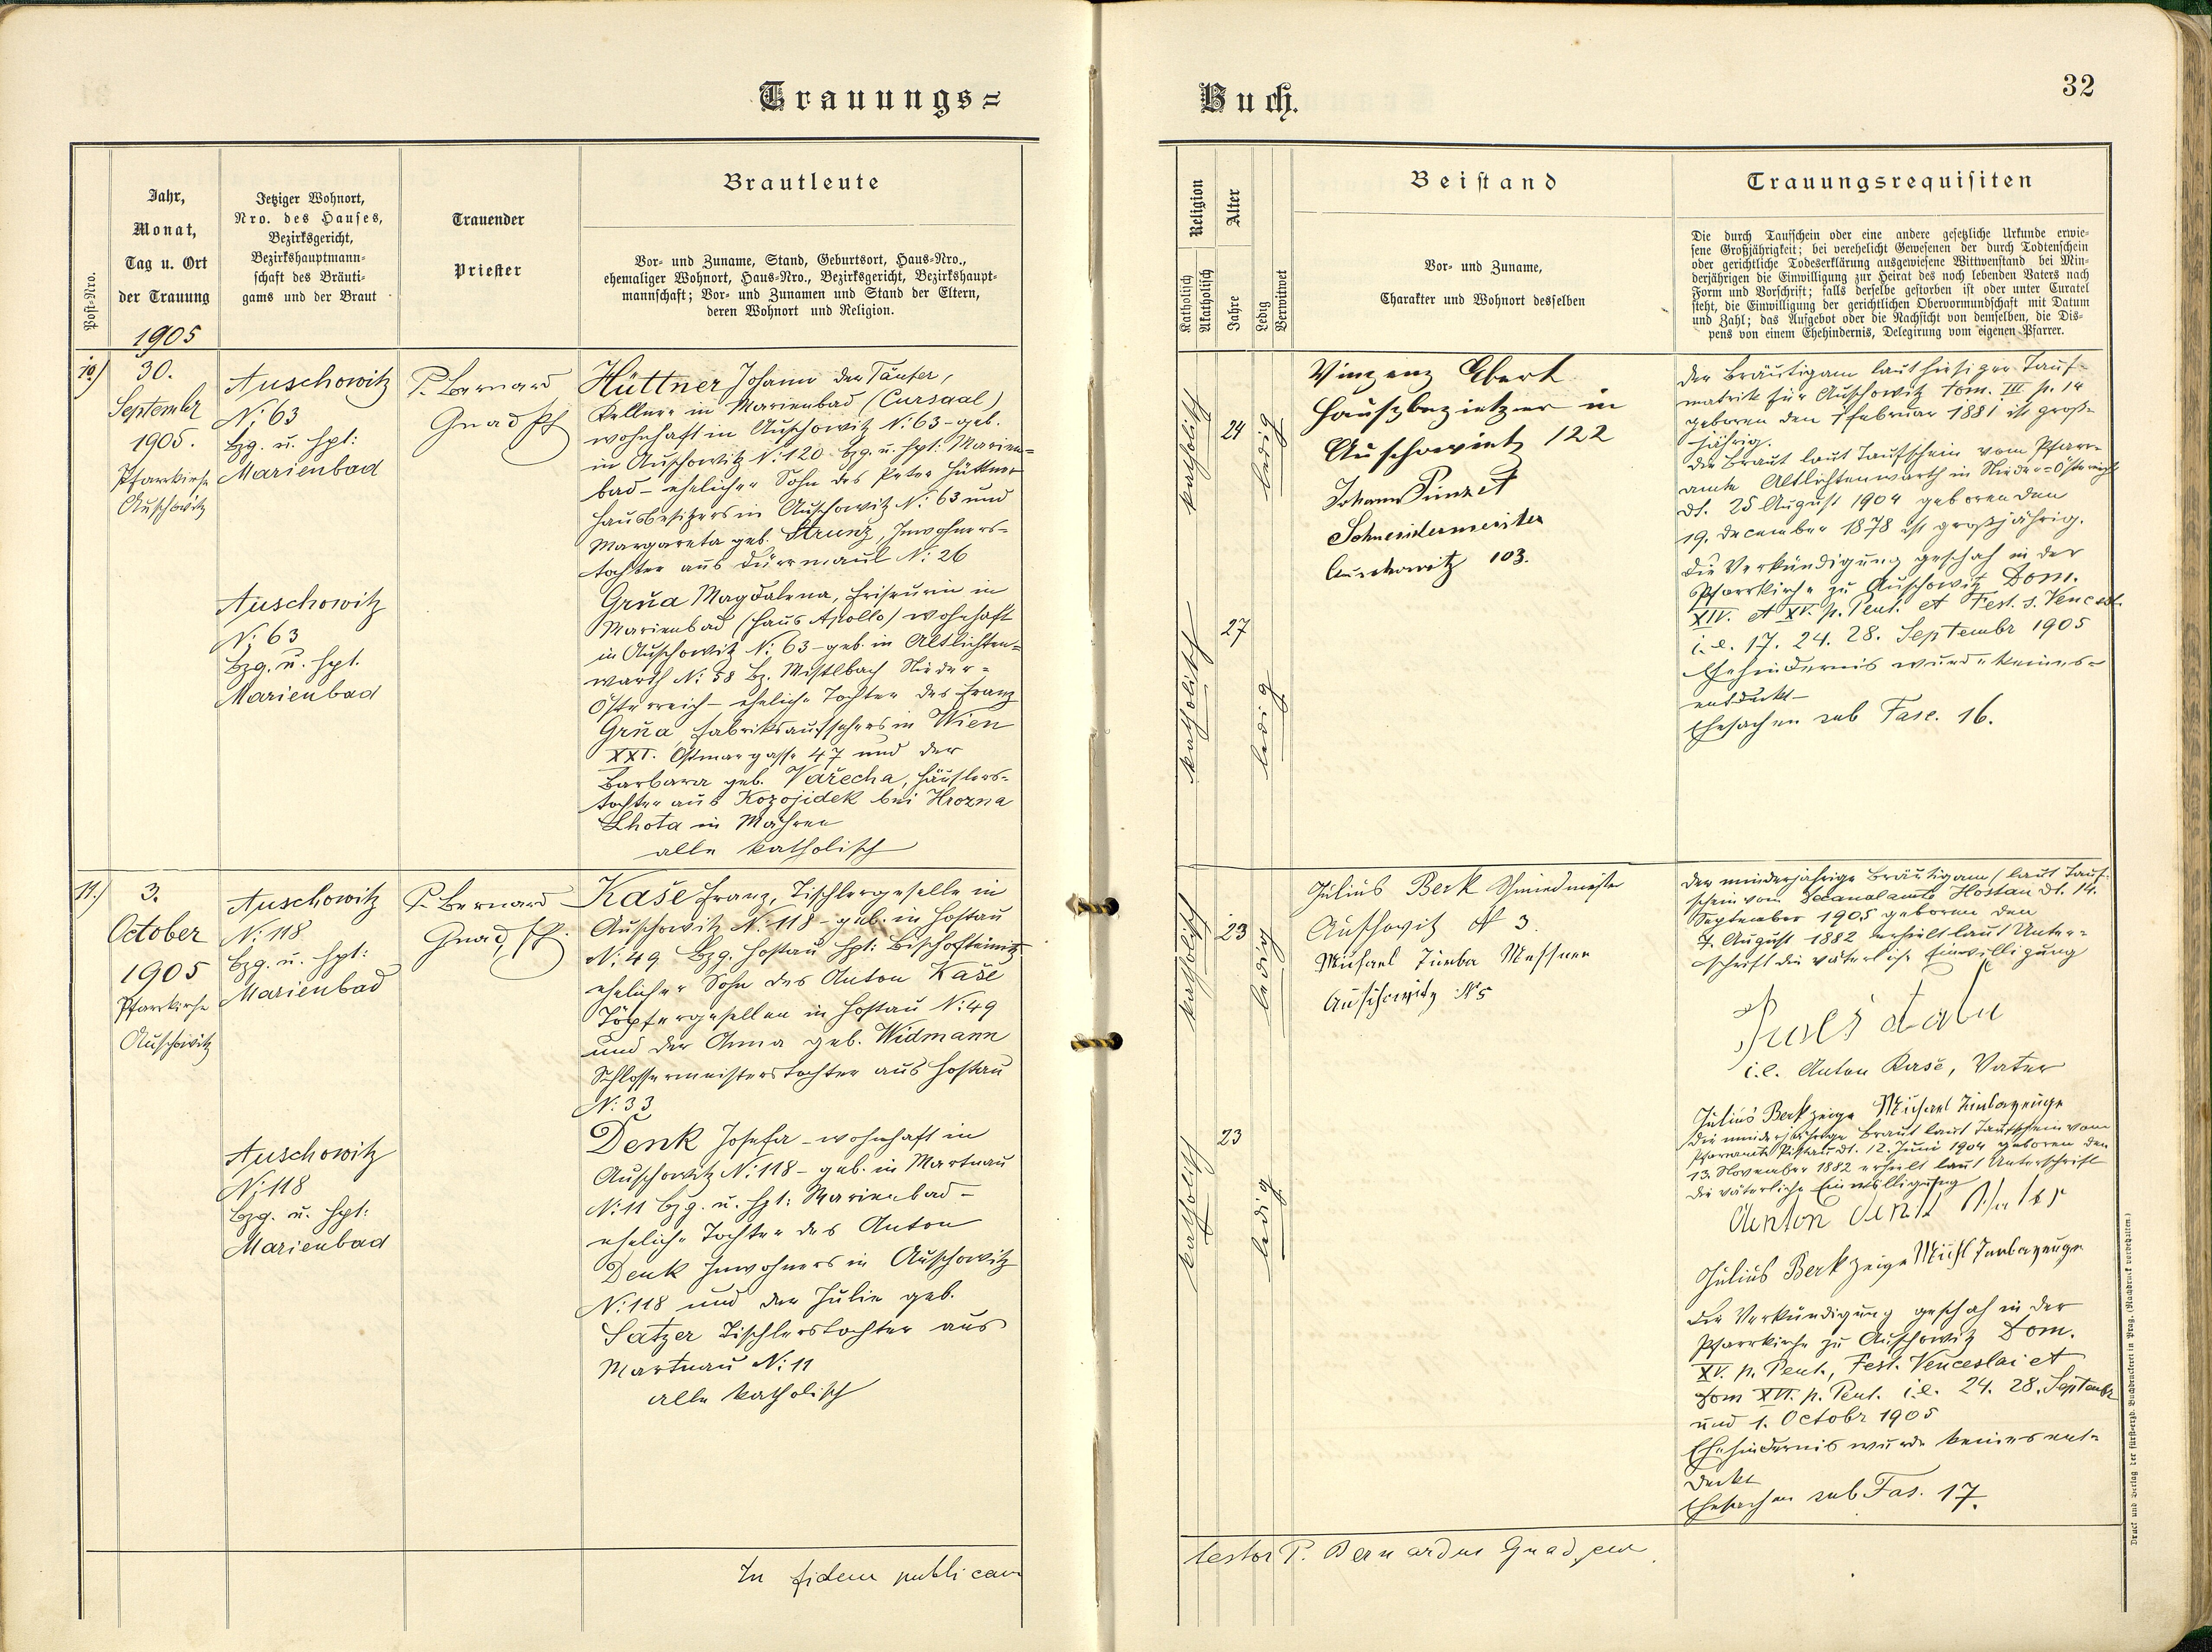 Trauungs=
Buch.
32
Post-Nro.
Jahr,
Monat,
Tag u. Ort
der Trauung
1905
Jetziger Wohnort,
Nro. des Hauses,
Bezirksgericht,
Bezirkshauptmann-
schaft des Bräuti-
gams und der Braut
Trauender
Priester
Brautleute
Vor- und Zuname, Stand, Geburtsort, Haus-Nro.,
ehemaliger Wohnort, Haus-Nro., Bezirksgericht, Bezirkshaupt-
mannschaft; Vor- und Zunamen und Stand der Eltern,
deren Wohnort und Religion.
Religion
Katholisch
Akatholisch
Alter
Jahre
Ledig
Verwitwet
Beistand
Vor- und Zuname,
Charakter und Wohnort desselben
Trauungsrequisiten
Die durch Taufschein oder eine andere gesetzliche Urkunde erwie-
sene Großjährigkeit; bei verehelicht Gewesenen der durch Todtenschein
oder gerichtliche Todeserklärung ausgewiesene Wittwenstand bei Min-
derjährigen die Einwilligung zur Heirat des noch lebenden Vaters nach
Form und Vorschrift; falls derselbe gestorben ist oder unter Curatel
steht, die Einwilligung der gerichtlichen Obervormundschaft mit Datum
und Zahl; das Aufgebot oder die Nachsicht von demselben, die Dis-
pens von einem Ehehindernis, Delegirung vom eigenen Pfarrer.
10.)
30.
September
1905.
Pfarrkirche
Auschowitz
Auschowitz
N: 63
bzg. u. hpt:
Marienbad
Auschowitz
N: 63
bzg. u. hpt.
Marienbad
P. Bernard
Gnad Pf
Hüttner Johann der Täufer,
Kellner in Marienbad (Cursaal)
wohnhaft in Auschowitz N: 63 - geb.
in Auschowitz N: 120 bzg. u. hpt: Marien=
bad - ehelicher Sohn des Peter Hüttner
Hausbesitzers in Auschowitz N: 63 und
Margareta geb. Strunz, Inwohners-
tochter aus Dürrmaul N: 26
Grũa Magdalena, Friseurin in
Marienbad (Haus Apollo) wohnhaft
in Auschowitz N: 63 - geb. in Altlichten=
warth N: 58 bz. Mistlbach Nieder=
Österreich - eheliche Tochter des Franz
Grũa Fabriksaufsehers in Wien
XXI. Ostmargasse 47 und der
Barbara geb. Vařecha, Häuslers=
tochter aus Kozojidek bei Hrozna
Lhota in Mähren
alle katholisch
katholisch
24
ledig
katholisch
27
ledig
Vinzenz Ebert
Hausbezietzer in
Auschowitz 122
Johann Pimzet
Schneidermeister
Auschowitz 103.
Der Bräutigam laut hiesiger Tauf-
matrik für Auschowitz tom. III p. 14
geboren den 1 Februar 1881 ist groß=
jährig.
Die Braut laut Taufschein vom Pfarr-
amte Altlichtenwarth in Nieder-Österreich
dt. 25 August 1904 geboren den
19. December 1878 ist großjährig.
Die Verkündigung geschah in der
Pfarrkirche zu Auschowitz Dom.
XIV. et XV. p. Pent. et Fest. s. Vencesl.
i. e. 17. 24. 28. Septembr 1905
Ehehindernis wurde keines=
entdeckt -
Ehesachen sub Fasc. 16.
11.)
3.
October
1905
Pfarrkirche
Auschowitz
Auschowitz
N: 118
bzg. u. hpt:
Marienbad
Auschowitz
N: 118
bzg. u. hpt:
Marienbad
P. Bernard
Gnad, Pf.
Kaše Franz, Tischlergeselle in
Auschowitz N: 118 - geb. in Hostau
N: 49 bzg. Hostau hpt: Bischofteinitz
ehelicher Sohn des Anton Kaše
Töpfergesellen in Hostau N: 49
und der Anna geb. Widmann
Schlossermeisterstochter aus Hostau
N: 33
Denk Josefa - wohnhaft in
Auschowitz N: 118 - geb. in Martnau
N: 11 bzg. u. hpt: Marienbad -
eheliche Tochter des Anton
Denk Inwohners in Auschowitz
N: 118 und der Julie geb.
Satzer Tischlerstochter aus
Martnau N: 11
alle katholisch
katholisch
23
ledig
katholisch
23
ledig
Julius Berk Schmiedmeister
Auschowitz N 3.
Michael Zimba Messner
Auschowitz N 5
Der minderjährige Bräutigam (laut Tauf-
schein vom Decanalamte Hostau dt. 14.
September 1905 geboren den
7. August 1882 erhielt laut Unter=
schrift die väterliche Einwilligung
i. e. Anton Kaše, Vater
Julius Berk Zeige Michael Zimba Zeuge
Die minderjährige Braut laut Taufschein vom
Pfarramte Pistau dt. 12. Juni 1904 geboren den
13. November 1882 erhielt laut Unterschrift
die väterliche Einwilligung
Anton Denk Vater
Julius Berk Zeige Michl Zimba Zeuge
Die Verkündigung geschah in der
Pfarrkirche zu Auschowitz Dom.
XV. p. Pent., Fest. Venceslai et
Dom XVI. p. Pent. i. e. 24. 28. Septembr
und 1. Octobr 1905
Ehehindernis wurde keines ent=
deckt
Ehesachen sub Fas. 17.
In fidem publicam
testor P. Bernardus Gnad,
Druck und Verlag der fürst-erzb. Buchdruckerei in Prag. (Nachdruck vorbehalten.)